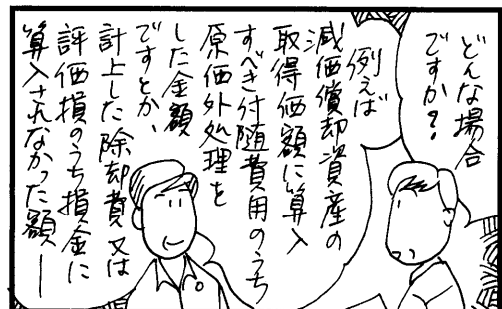 どんな場合
ですか?
例えば
減価償却資産の
取得価額に算入
すべき付随費用のうち
原価外処理を
した金額
ですとか、
計上した除却費又は
評価損のうち損金に
算入されなかった額ー